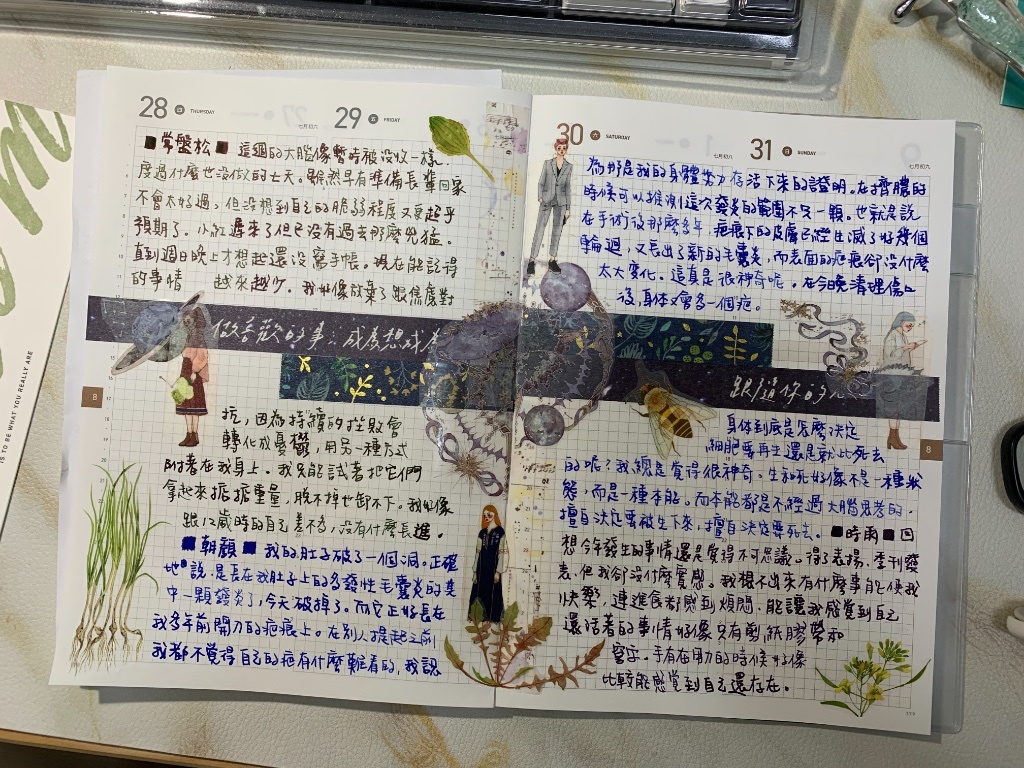 IS TO BE WHAT YOU REALLY ARE
28 四 THURSDAY
七月初六
29 五 FRIDAY
■常盤松■ 這週的大腦像暫時被沒收一樣,
度過什麼也沒做的七天。雖然早有準備長輩回家
不會太好過,但沒想到自己的脆弱程度又更超乎
預期了。小紅遲來了但已沒有過去那麼兇猛。
直到週日晚上才想起還沒寫手帳。現在能記得
的事情 越來越少。我好像放棄了跟焦慮對
做喜歡的事;成為想成為
抗,因為持續的挫敗會
轉化成憂鬱,用另一種方式
附著在我身上。我只能試著把它們
拿起來掂掂重量,脫不掉也卸不下。我好像
跟12歲時的自己差不多,沒有什麼長進。
■朝顏■ 我的肚子破了一個洞。正確
地說,是長在我肚子上的多發性毛囊炎的其
中一顆發炎了,今天破掉了。而它正好長在
我多年前開刀的疤痕上。在別人提起之前
我都不覺得自己的疤有什麼難看的,我認
8
30 六 SATURDAY
七月初八
31 日 SUNDAY
七月初九
為那是我的身體努力存活下來的證明。在擠膿的
時候可以推測這次發炎的範圍不只一顆。也就是說
在手術後那麼多年,疤痕下的皮膚已經生滅了好幾個
輪迴,又長出了新的毛囊炎,而表面的疤痕卻沒什麼
太大變化。這真是很神奇呢。在今晚清理傷口
後,身體又會多一個疤。
跟隨你的
身體到底是怎麼決定
細胞要再生還是就此死去
的呢?我總是覺得很神奇。生和死好像不是一種狀
態,而是一種本能。而本能都是不經過大腦思考的,
擅自決定要被生下來,擅自決定要死去。■時雨■回
想今年發生的事情還是覺得不可思議。得了表揚,季刊發
表,但我卻沒什麼實感。我想不出來有什麼事能使我
快樂,連進食都感到煩悶,能讓我感覺到自己
還活著的事情好像只有剪紙膠帶和
寫字。手有在用力的時候好像
比較能感覺到自己還存在。
8